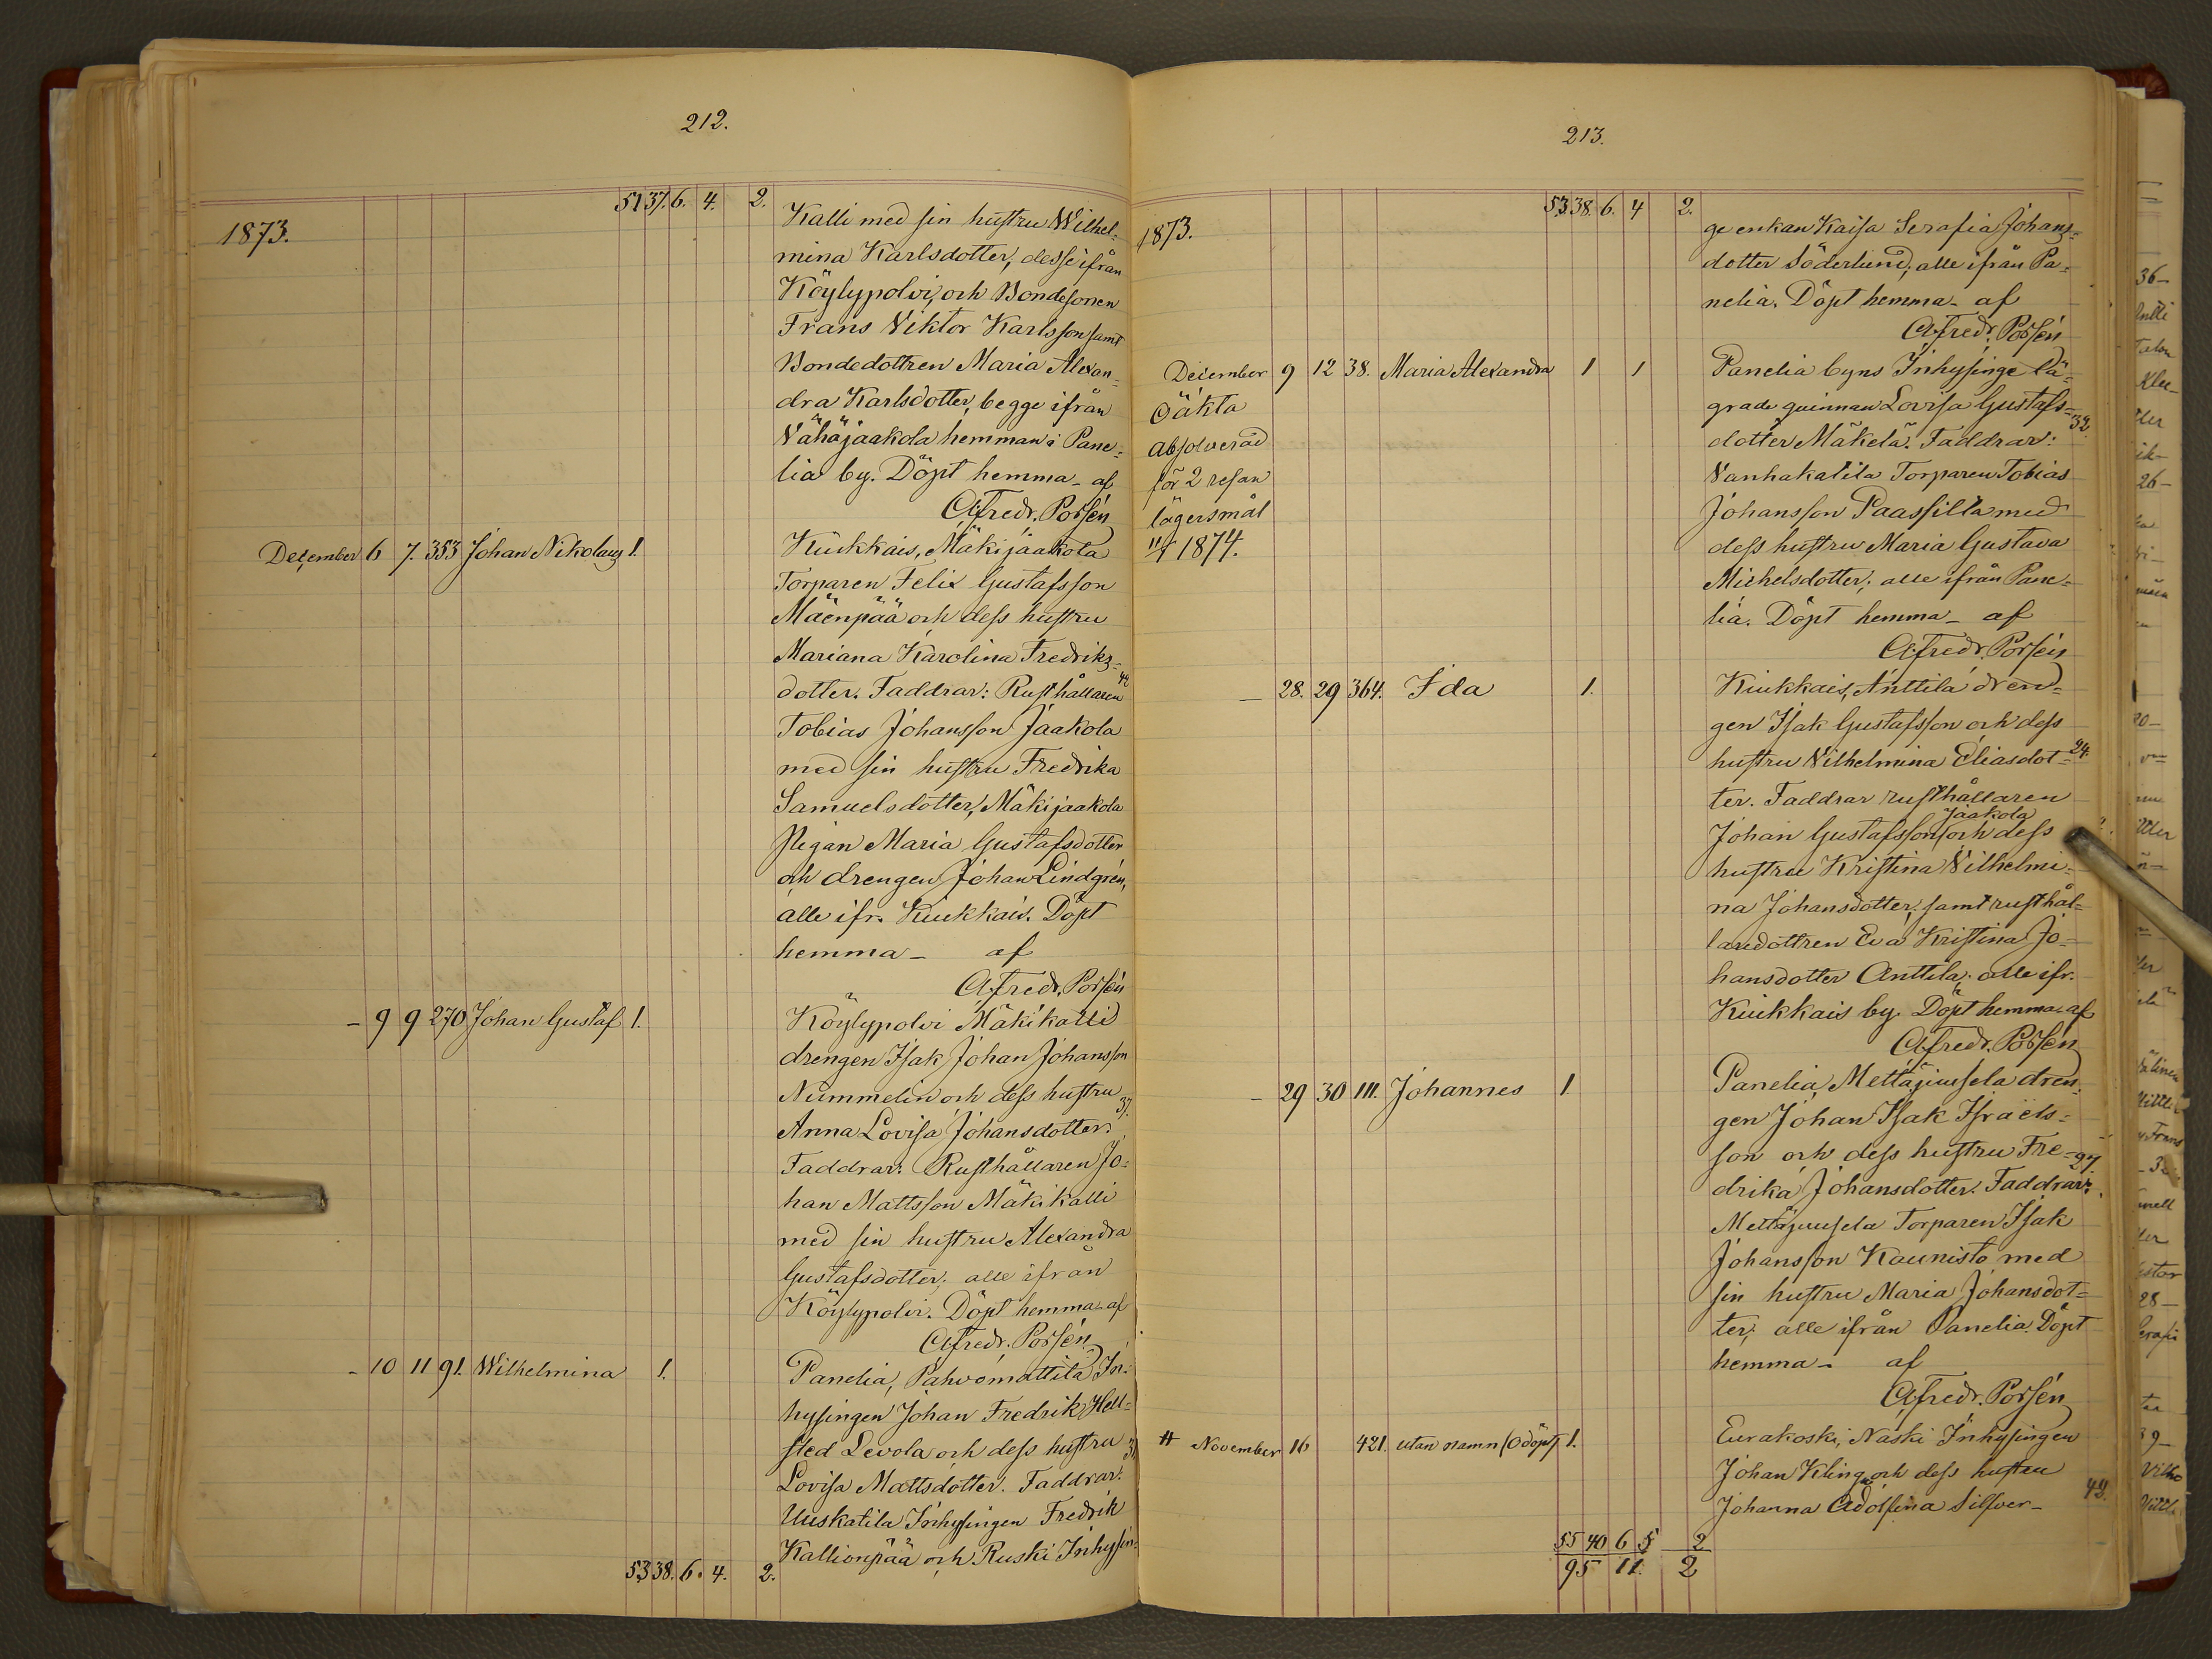 212.
51 37. 6. 4. 2.
1873.
Kalli med sin hustru Wilhel=
mina Karlsdotter, desse ifrån
Köylypolvi, och Bondesonen
Frans Viktor Karlsson samt
Bondedottren Maria Alexan=
dra Karlsdotter, begge ifrån
Vähäjaakola hemman i Pane=
lia by. Döpt hemma – af
Alfredr. Porsén
December 6 7. 353 Johan Nikolaus 1. Kiukkais, Mäkijaakola
Torparen Felix Gustafsson
Mäenpää och dess hustru
Mariana Karolina Fredriks=
dotter. Faddrar: Rusthållaren
Tobias Johansson Jaakola
med sin hustru Fredrika
Samuelsdotter, Mäkijaakola
Pigan Maria Gustafsdotter
och drengen Johan Lindgrén,
alle ifr. Kiukkais. Döpt
hemma – af
Alfredr. Porsén
– 9 9 270 Johan Gustaf 1. Köylypolvi Mäkikalli
drengen Isak Johan Johansson
Nummelin och dess hustru
37.
Anna Lovisa Johansdotter.
Faddrar: Rusthållaren Jo=
han Mattsson Mäkikalli
med sin hustru Alexandra
Gustafsdotter; alle ifrån
Köylypolvi. Döpt hemma – af
Alfredr. Porsén
– 10 11 91. Wilhelmina 1. Panelia, Pahvomattila In=
hysingen Johan Fredrik Hell=
sted Levola och dess hustru
Lovisa Mattsdotter. Faddrar:
Uuskatila Inhysingen Fredrik
Kallionpää och Ruski Inhysin=
53 38. 6. 4. 2.
213.
53 38. 6. 4 2.
1873.
ge enkan Kaisa Serafia Johans=
dotter Söderlund; alle ifrån Pa=
nelia. Döpt hemma – af
Alfredr. Porsén
December 9 12 38. Maria Alexandra 1 1 Panelia byns Inhysinge lä=
Oäkta
grade quinnan Lovisa Gustafs= 32.
Absolverad
dotter Mäkelä. Faddrar:
för 2 resan
Vanhakatila Torparen Tobias
lägersmål
Johansson Paassilta med
1874.
dess hustru Maria Gustava
Michelsdotter; alle ifrån Pane=
lia. Döpt hemma – af
Alfredr. Porsén
– 28. 29 364. Ida 1. Kiukkais, Anttila dren=
gen Isak Gustafsson och dess
hustru Vilhelmina Eliasdot= 24.
ter. Faddrar rusthållaren
Jaakola
Johan Gustafsson och dess
hustru Kristina Vilhelmi=
na Johansdotter, samt rusthål=
laredottren Eva Kristina Jo=
hansdotter Anttila; alle ifr.
Kiukkais by. Döpt hemma af
Alfredr. Porsén
– 29 30 111. Johannes 1. Panelia, Mettäjuusela dren=
gen Johan Isak Israels=
son och dess hustru Fre= 27.
drika Johansdotter. Faddrar:
Mettäjuusela Torparen Isak
Johansson Kaunisto med
sin hustru Maria Johansdot=
ter; alle ifrån Panelia. Döpt
hemma – af
Alfredr. Porsén
# November 16 421. utan namn (Odöpt) 1. Eurakoski, Naski Inhysingen
Johan Kling och dess hustru
Johanna Adolfina Silfver–
55 40 6 5 2
95 11. 2